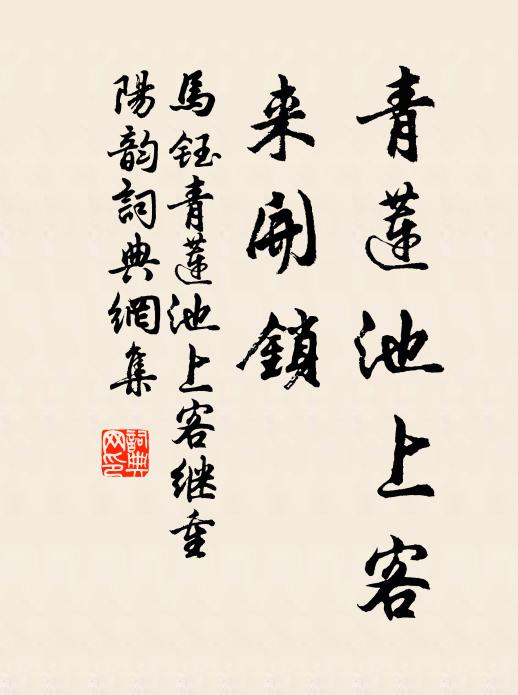 青蓮池上客
来開鎖
馬鈺青蓮池上客继重
陽韵詞典網集
詞典
网印